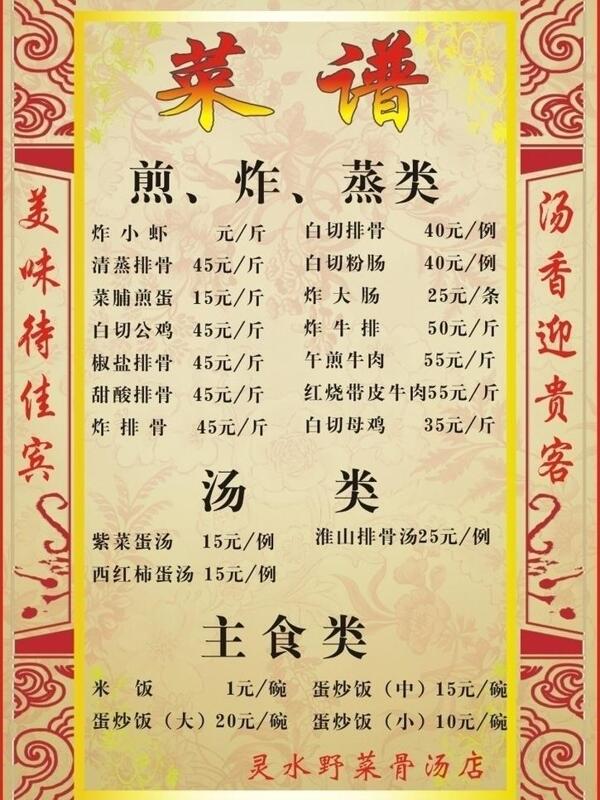 菜谱
煎、炸、蒸类
炸小虾 元/斤
清蒸排骨 45元/斤
菜脯煎蛋 15元/斤
白切公鸡 45元/斤
椒盐排骨 45元/斤
甜酸排骨 45元/斤
炸排骨 45元/斤
白切排骨 40元/例
白切粉肠 40元/例
炸大肠 25元/条
炸牛排 50元/斤
午煎牛肉 55元/斤
红烧带皮牛肉55元/斤
白切母鸡 35元/斤
汤类
紫菜蛋汤 15元/例
西红柿蛋汤 15元/例
淮山排骨汤25元/例
主食类
米饭 1元/碗
蛋炒饭（大）20元/碗
蛋炒饭（中）15元/碗
蛋炒饭（小）10元/碗
灵水野菜骨汤店
美味待佳宾
汤香迎贵客